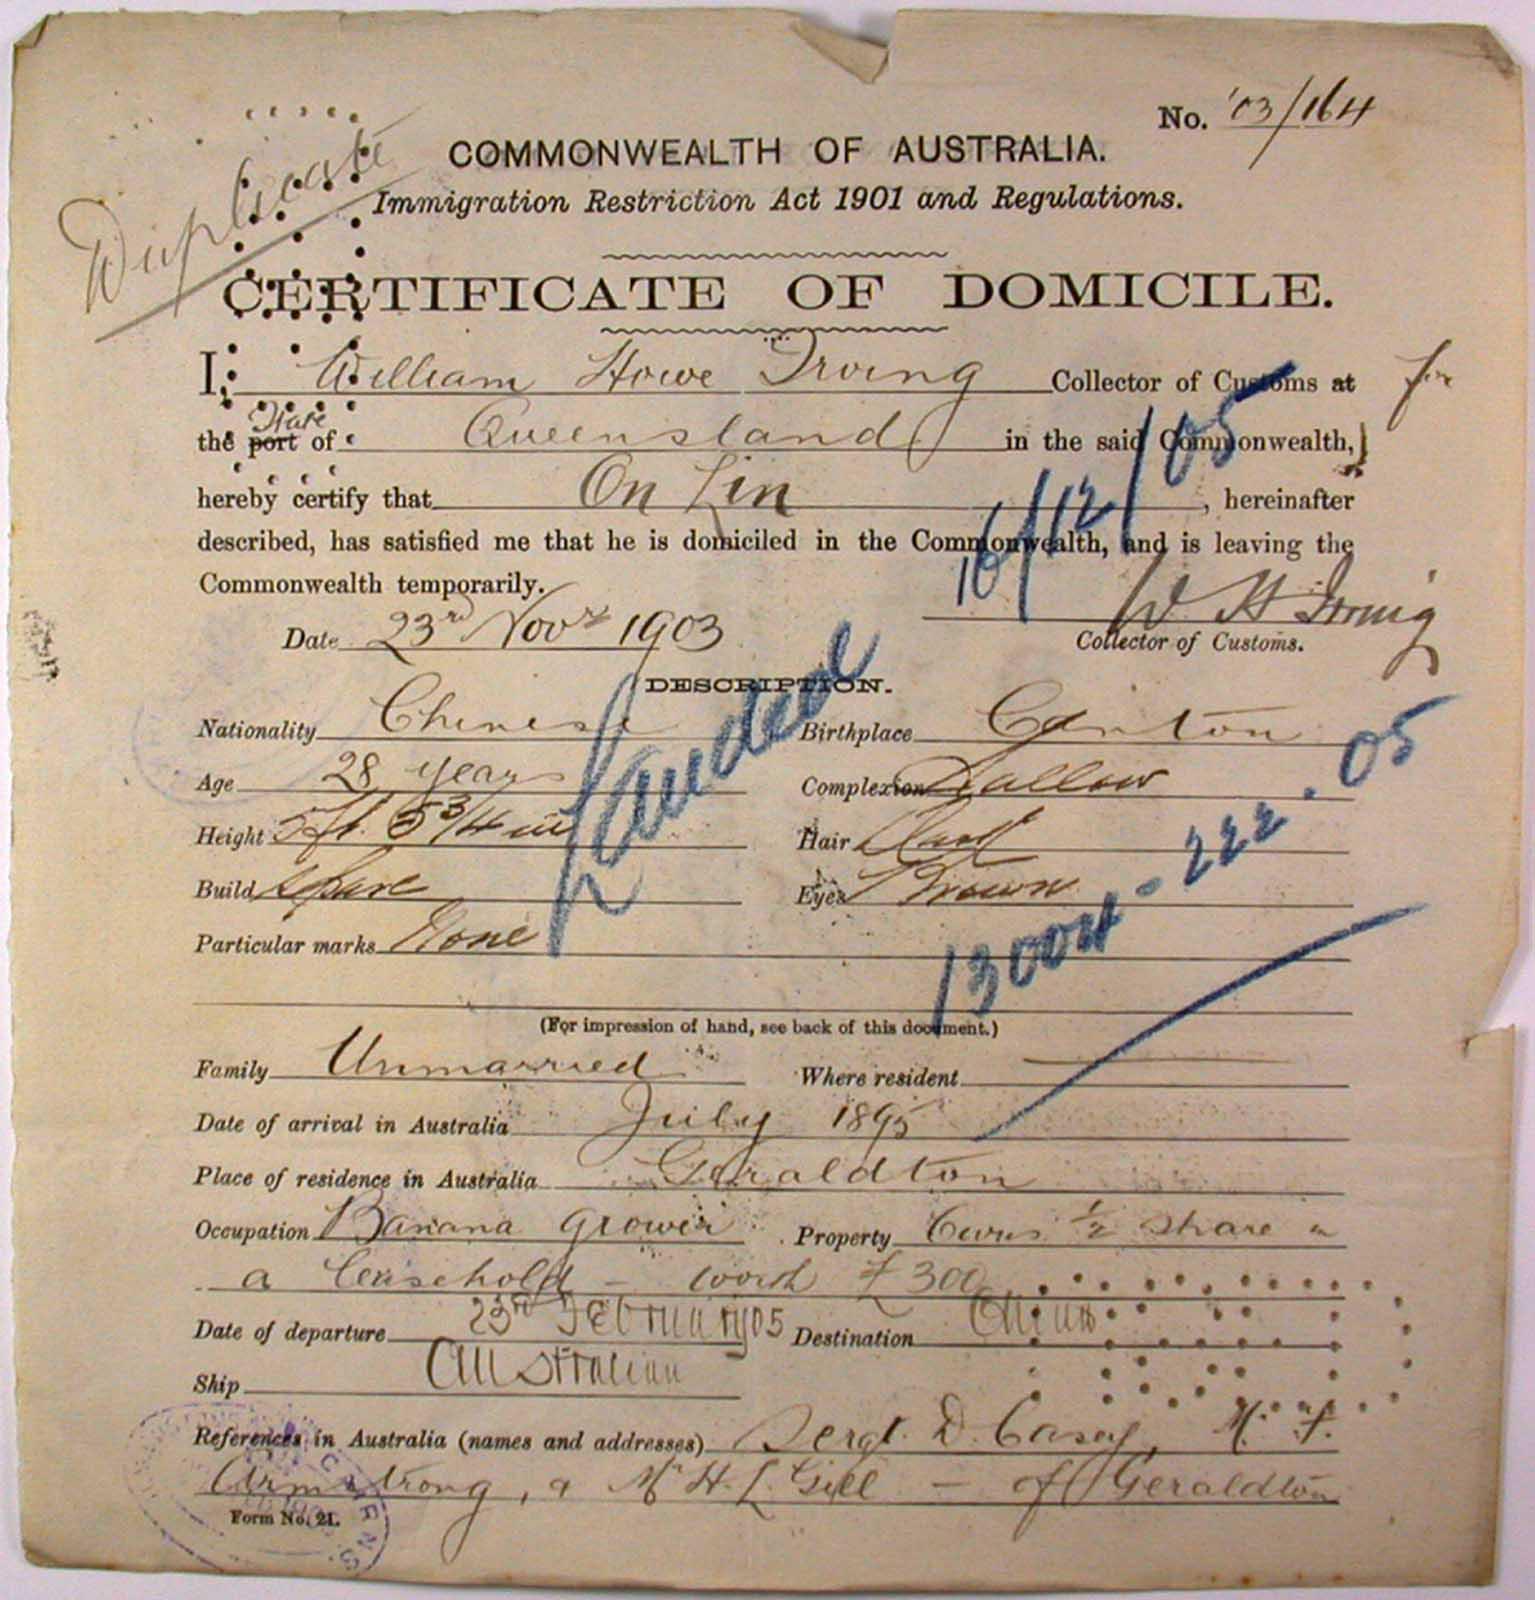 No. '03/164
Duplicate
COMMONWEALTH OF AUSTRALIA.
Immigration Restriction Act 1901 and Regulations.
CERTIFICATE OF DOMICILE.
I, William Howe Irving Collector of Customs at for
the port State of Queensland in the said Commonwealth,
hereby certify that On Lin, hereinafter
described, has satisfied me that he is domiciled in the Commonwealth, and is leaving the
Commonwealth temporarily.
16/12/05
W H Irving
Date 23rd Novr 1903
Collector of Customs.
DESCRIPTION.
Landed
Nationality Chinese Birthplace Canton
Age 28 years Complexion Sallow
Height 5 ft. 5 3/4 in Hair Dark
Build Spare Eyes Brown
Particular marks None
13004 - 222 . 05
(For impression of hand, see back of this document.)
Family Unmarried Where resident
Date of arrival in Australia July 1895
Place of residence in Australia Geraldton
Occupation Banana Grower Property Owns 1/2 share in
a leasehold - worth £300
Date of departure 23rd February 05 Destination China
Ship Australian
References in Australia (names and addresses) Sergt. D. Casey, M. F.
Armstrong, & Mr H. L. Gill - of Geraldton
Form No. 21.